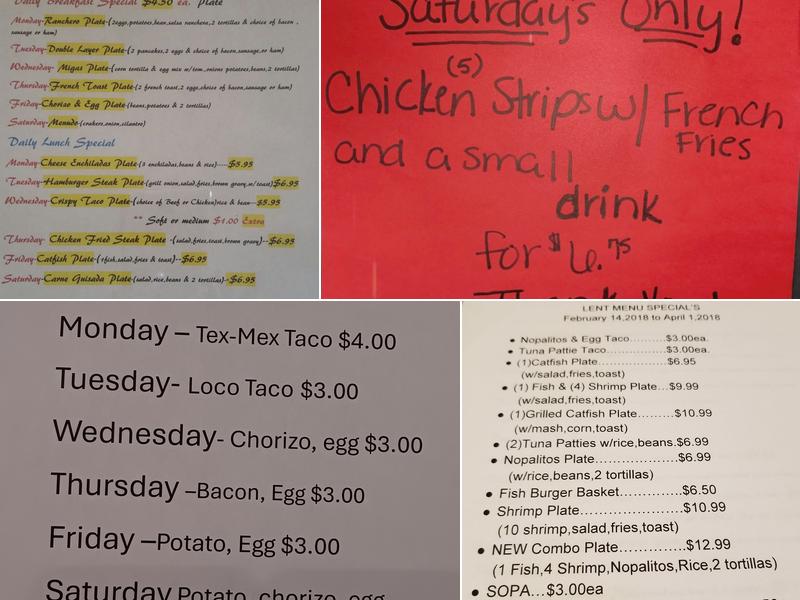 Daily Breakfast Special $4.50 ea. Plate
Monday-Ranchero Plate-(2eggs,potatoes,bean,salsa ranchera,2 tortillas & choice of bacon ,
sausage or ham)
Tuesday-Double Layer Plate-(2 pancakes,2 eggs & choice of bacon,sausage,or ham)
Wednesday- Migas Plate-(corn tortilla & egg mix w/tom.,onions potatoes,beans,2 tortillas)
Thursday-French Toast Plate-(2 french toast,2 eggs,choice of bacon,sausage or ham)
Friday-Chorizo & Egg Plate-(beans,potatoes & 2 tortillas)
Saturday-Menudo-(crakers,onion,cilantro)
Daily Lunch Special
Monday-Cheese Enchiladas Plate-(3 enchiladas,beans & rice)----$5.95
Tuesday-Hamburger Steak Plate-(grill onion,salad,fries,brown gravy,w/toast)$6.95
Wednesday-Crispy Taco Plate-(choice of Beef or Chicken)rice & bean--$5.95
** Soft or medium $1.00 Extra
Thursday- Chicken Fried Steak Plate -(salad,fries,toast,brown gravy)--$6.95
Friday-Catfish Plate-(1fish,salad,fries & toast)--$6.95
Saturday-Carne Guisada Plate-(salad,rice,beans & 2 tortillas)--$6.95
Saturday's Only!
(5)
Chicken Strips w/ French
Fries
and a small
drink
for $6.75
Thank You!
Monday – Tex-Mex Taco $4.00
Tuesday- Loco Taco $3.00
Wednesday- Chorizo, egg $3.00
Thursday –Bacon, Egg $3.00
Friday –Potato, Egg $3.00
Saturday Potato, chorizo, egg
LENT MENU SPECIAL'S
February 14,2018 to April 1,2018
• Nopalitos & Egg Taco..........$3.00ea.
• Tuna Pattie Taco................$3.00ea.
• (1)Catfish Plate..................$6.95
(w/salad,fries,toast)
• (1) Fish & (4) Shrimp Plate...$9.99
(w/salad,fries,toast)
• (1)Grilled Catfish Plate........$10.99
(w/mash,corn,toast)
• (2)Tuna Patties w/rice,beans.$6.99
• Nopalitos Plate...................$6.99
(w/rice,beans,2 tortillas)
• Fish Burger Basket.............$6.50
• Shrimp Plate.......................$10.99
(10 shrimp,salad,fries,toast)
• NEW Combo Plate.............$12.99
(1 Fish,4 Shrimp,Nopalitos,Rice,2 tortillas)
• SOPA...$3.00ea